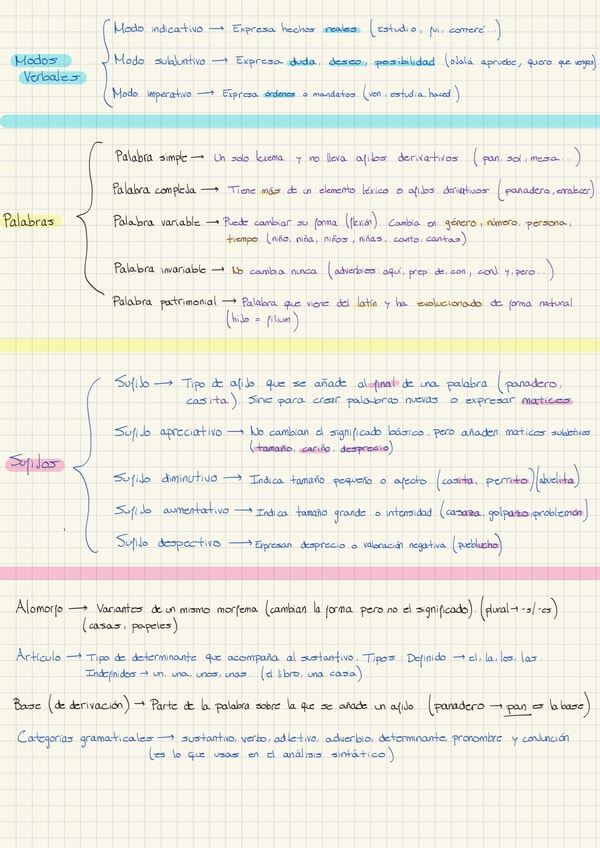 Modos
Verbales
Modo indicativo → Expresa hechos reales (estudio, fui, comeré...)
Modo subjuntivo → Expresa duda, deseo, posibilidad (ojalá apruebe, quero que vengas)
Modo imperativo → Expresa órdenes o mandatos (ven, estudia, haced)
Palabras
Palabra simple → Un solo lexema y no lleva afijos derivativos (pan, sol, mesa...)
Palabra compleja → Tiene más de un elemento léxico o afijos derivativos (panadero, enrabcer)
Palabra variable → Puede cambiar su forma (flexión). Cambia en género, número, persona,
tiempo (niño, niña, niños, niñas, canto, cantas)
Palabra invariable → No cambia nunca (adverbios: aquí, prep: de, con, conj: y, pero...)
Palabra patrimonial → Palabra que viene del latín y ha evolucionado de forma natural
(hijo = filium)
Sufijos
Sufijo → Tipo de afijo que se añade al final de una palabra (panadero,
casita). Sirve para crear palabras nuevas o expresar matices
Sufijo apreciativo → No cambian el significado básico, pero añaden matices subjetivos
(tamaño, cariño, desprecio)
Sufijo diminutivo → Indica tamaño pequeño o afecto (casita, perrito)(abuelita)
Sufijo aumentativo → Indica tamaño grande o intensidad (casaza, golpazo, problemón)
Sufijo despectivo → Expresan desprecio o valoración negativa (pueblucho)
Alomorfo → Variantes de un mismo morfema (cambian la forma pero no el significado). (plural → -s/-es)
(casas, papeles)
Artículo → Tipo de determinante que acompaña al sustantivo. Tipos: Definido → el, la, los, las.
Indefinidos → un, una, unos, unas. (el libro, una casa)
Base (de derivación) → Parte de la palabra sobre la que se añade un afijo (panadero → pan es la base)
Categorías gramaticales → sustantivo, verbo, adjetivo, adverbio, determinante, pronombre y conjunción
(es lo que usas en el análisis sintático)